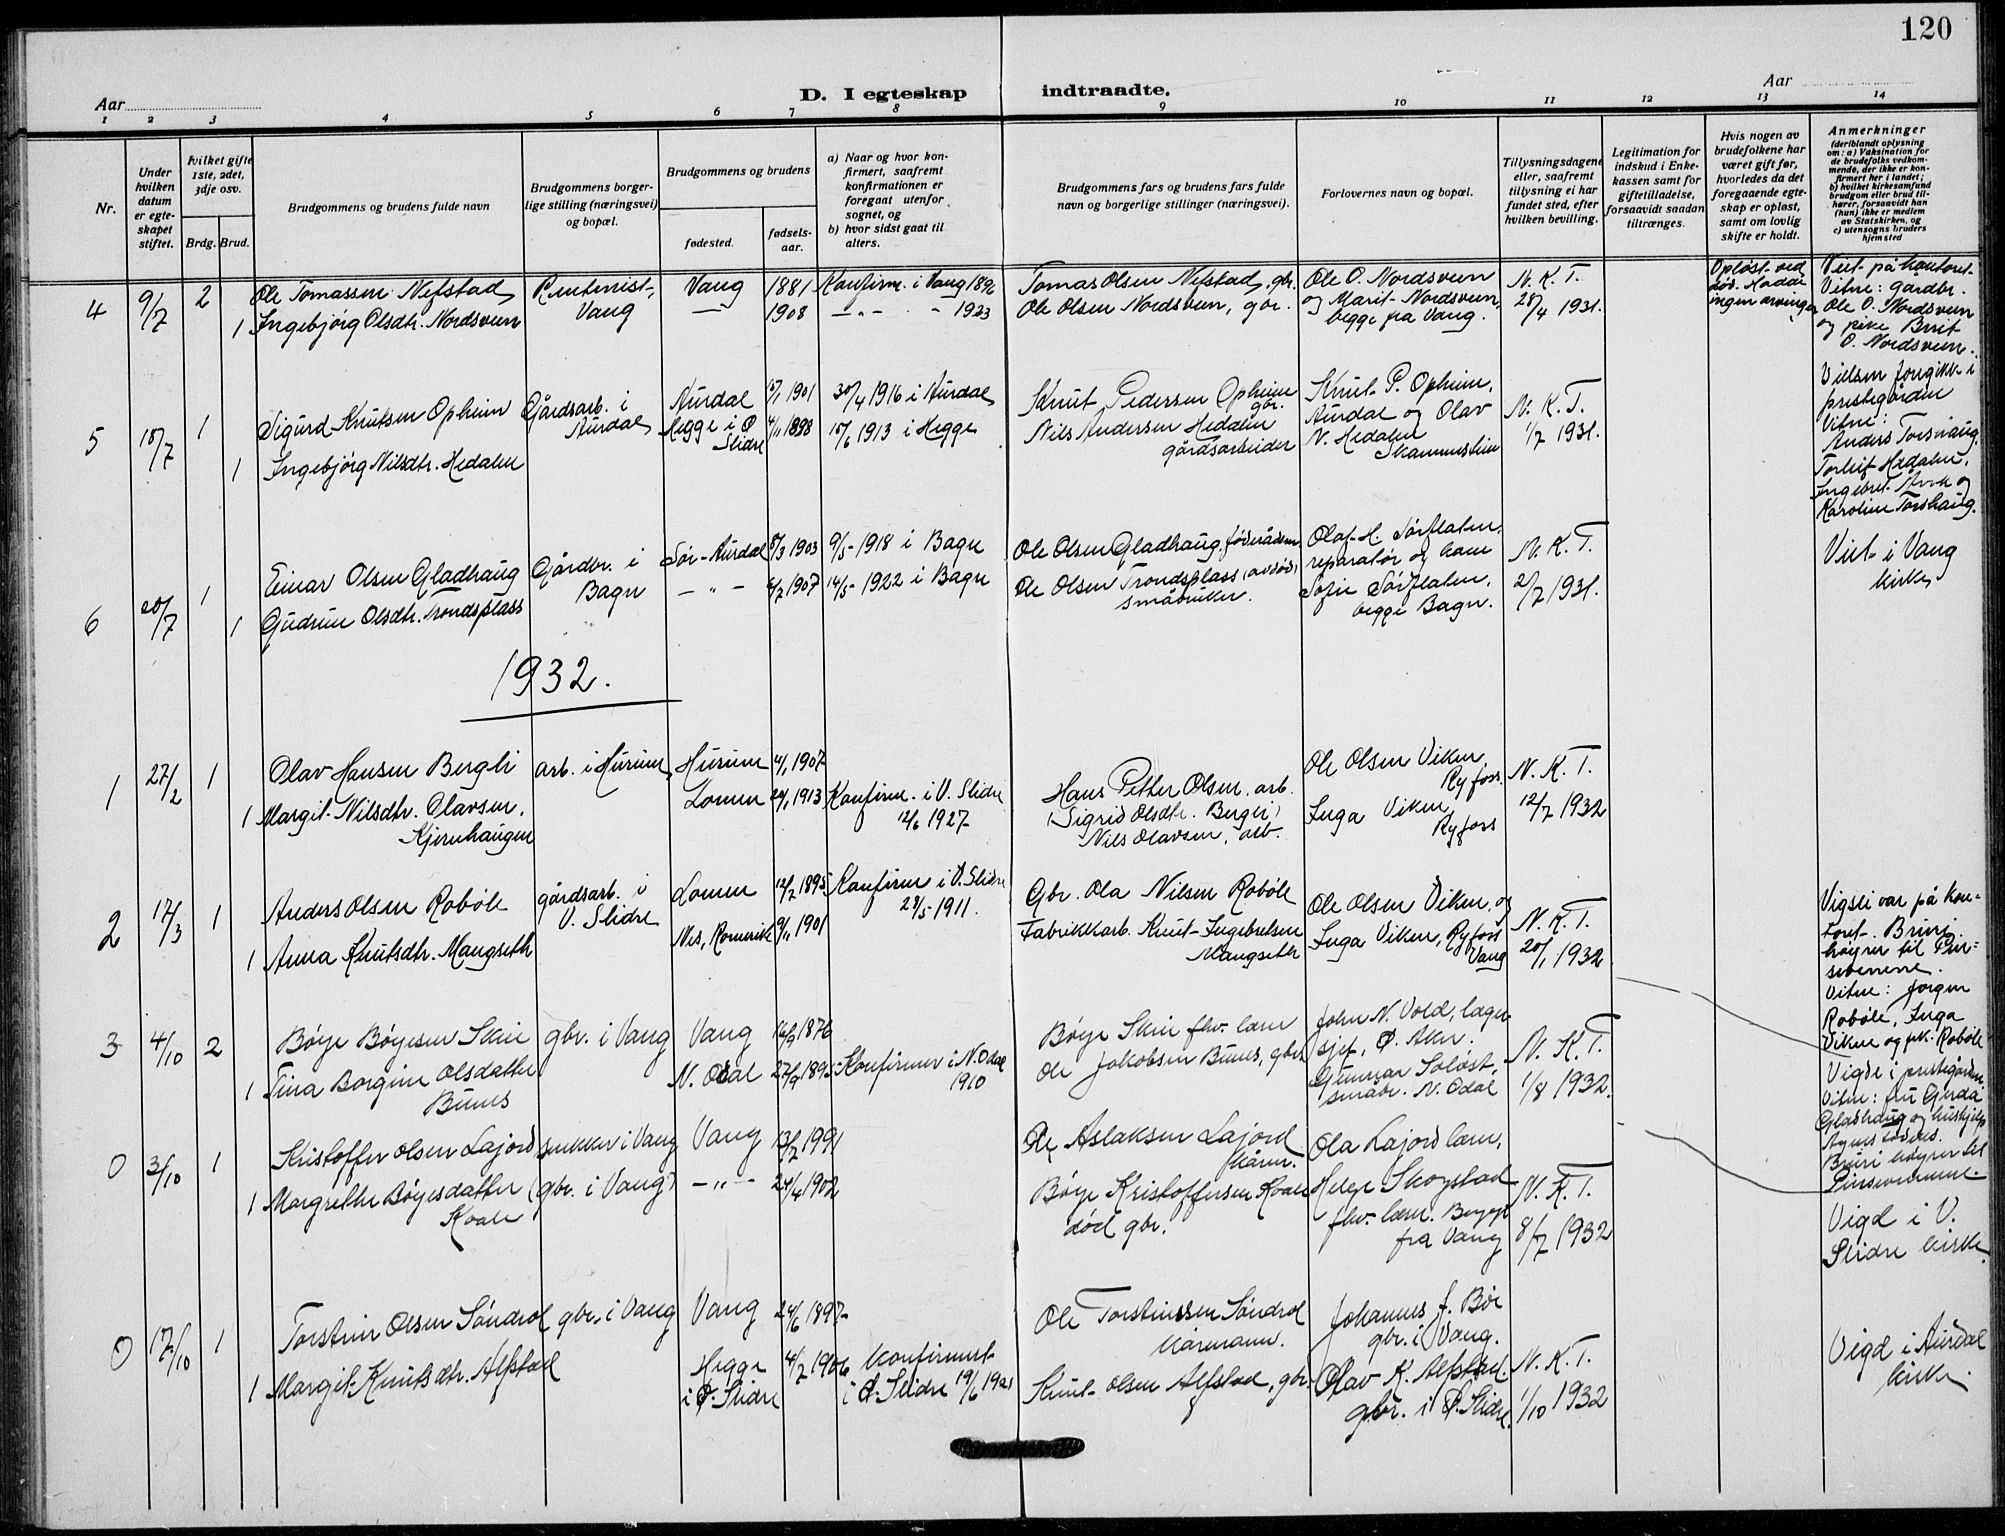 120
Aar
D. I egteskap indtraadte.
Aar
1 2 3 4 5 6 7 8 9 10 11 12 13 14
Nr.
Under
hvilken
datum
er egte-
skapet
stiftet.
Hvilket gifte
1ste, 2det,
3dje osv.
Brdg. Brud.
Brudgommens og brudens fulde navn
Brudgommens borger-
lige stilling (næringsvei)
og bopæl.
Brudgommens og brudens
fødested.
fødsels-
aar.
a) Naar og hvor kon-
firmert, saafremt
konfirmationen er
foregaat utenfor
sognet, og
b) hvor sidst gaat til
alters.
Brudgommens fars og brudens fars fulde
navn og borgerlige stillinger (næringsvei).
Forlovernes navn og bopæl.
Tillysningsdagene
eller, saafremt
tillysning ei har
fundet sted, efter
hvilken bevilling.
Legitimation for
indskud i Enke-
kassen samt for
giftetilladelse,
forsaavidt saadan
tiltrænges.
Hvis nogen av
brudefolkene har
været gift før,
hvorledes da det
foregaaende egte-
skap er opløst,
samt om lovlig
skifte er holdt.
Anmerkninger
(deriblandt oplysning
om: a) Vaksination for
de brudefolks vedkom-
mende, der ikke er kon-
firmert her i landet;
b) hvilket kirkesamfund
brudgom eller brud til-
hører, forsaavidt han
(hun) ikke er medlem
av Statskirken, og
c) utensogns bruders
hjemsted
4 9/7 2 Ole Tomassen Nefstad Rentenist, Vang 1881 Konfirm. i Vang 1896 Tomas Olsen Nefstad, gbr. Ole O. Nordsveen N. K. T. Opløst ved
1 Ingebjörg Olsdtr. Nordsveen Vang — 1908 —„— - 1923 Ole Olsen Nordsveen, gbr. og Marit Nordsveen, 28/4 1931.
begge fra Vang.
død. Hadde
ingen arvinger
Viet på kontoret
Vitne: gardbr.
Ole O. Nordsveen
og pike Berit
O. Nordsveen.
5 18/7 1 Sigurd Knutsen Opheim Gårdsarb. i Aurdal 1901 30/4 1916 i Aurdal Knut Pedersen Opheim Knut P. Opheim,
Aurdal gbr. Aurdal og Olav N. K. T.
1 Ingebjörg Nilsdtr. Hedalen Hegge i Ø. Slidre 4/11 1898 15/6 1913 i Hegge Nils Andersen Hedalen N. Hedalen 1/7 1931.
gårdsarbeider Skammestein
Vielsen foregikk i
prestegården
Vitne:
Anders Torshaug,
Torleif Hedalen,
Ingebret og
Karoline Torshaug.
6 20/7 1 Einar Olsen Gladhaug Gårdbr. i Sør-Aurdal 8/3 1903 9/5 1918 i Bagn Ole Olsen Gladhaug, föderådsm. Olaf H. Sørflaten,
Bagn reparatør og kone N. K. T.
1 Gudrun Olsdtr. Trondsplass — „ — 6/2 1907 14/5 1922 i Bagn Ole Olsen Trondsplass (avdød) Sofie Sørflaten, 2/7 1931.
småbruker. begge Bagn.
Viet i Vang
kirke
1932.
1 27/2 1 Olav Hansen Bergli arb. i Hurum Hurum 4/1 1907 Hans Petter Olsen, arb. Ole Olsen Viken, N. K. T.
(Sigrid Olsdtr. Bergli) Ryfoss.
1 Margit Nilsdtr. Olavsen, Lomen 24/1 1913 Konfirm. i V. Slidre Nils Olavsen, arb. Inga Viken 12/7 1932
Kjernhaugen 12/6 1927 Ryfoss
2 17/3 1 Anders Olsen Robøle gårdsarb. i Lomen 12/2 1895 Konfirm i V. Slidre Gbr. Ola Nilsen Robøle Ole Olsen Viken og
V. Slidre 28/5 1911. N. K. T.
1 Anna Knutsdtr. Mangseth Nes, Romerike 9/11 1901 Fabrikkarb. Knut Ingebretsen Inga Viken, Ryfoss 20/1 1932
Mangseth Vang
Vigsli var på kon-
toret. Bruri
høyrer til Pin-
sevennene.
Vitne: Jørgen
Robøle, Inga
Viken og frk. Robøle
3 4/10 2 Bøye Bøyesen Skeie gbr. i Vang Vang 16/9 1876 Bøye Skeie fhv. lærer John N. Vold, lager-
sjef, Ø. Aker. N. K. T.
1 Tina Borgine Olsdatter N. Odal 27/9 1895 Konfirmer i N. Odal Ole Jakobsen Bunes, gbr. Gunnar Soløst, 1/8 1932.
Bunes 1910 småbr. N. Odal
Vigde i prestegården.
Vitne: fru Gerda
Gladhaug og hushjelp
Agnes
Bruri høyrer til
Pinsevennene.
0 3/10 1 Kristoffer Olsen Lajord snekker i Vang Vang 13/2 1991 Ole Aslaksen Lajord Ola Lajord lærer,
kårm.
1 Margrethe Bøyesdatter (gbr. i Vang) — „ — 24/4 1902 Bøye Kristoffersen Kvale Helge Skogstad N. K. T.
Kvale død gbr. fhv. lærer. Begge 8/7 1932
fra Vang
Vigd i V.
Slidre kirke.
0 17/10 1 Torstein Olsen Søndrol gbr. i Vang Vang 24/6 1897 Ole Torsteinssen Søndrol Johannes J. Bøe
kårmann. gbr. i Vang.
1 Margit Knutsdtr. Alfstad Hegge 4/2 1906 konfirmert Knut Olsen Alfstad, gbr. Olav K. Alfstad. N. K. T.
i Ø. Slidre i Ø. Slidre 19/6 1921 gbr. i Ø. Slidre. 1/10 1932
Vigd i Aurdal
kirke.